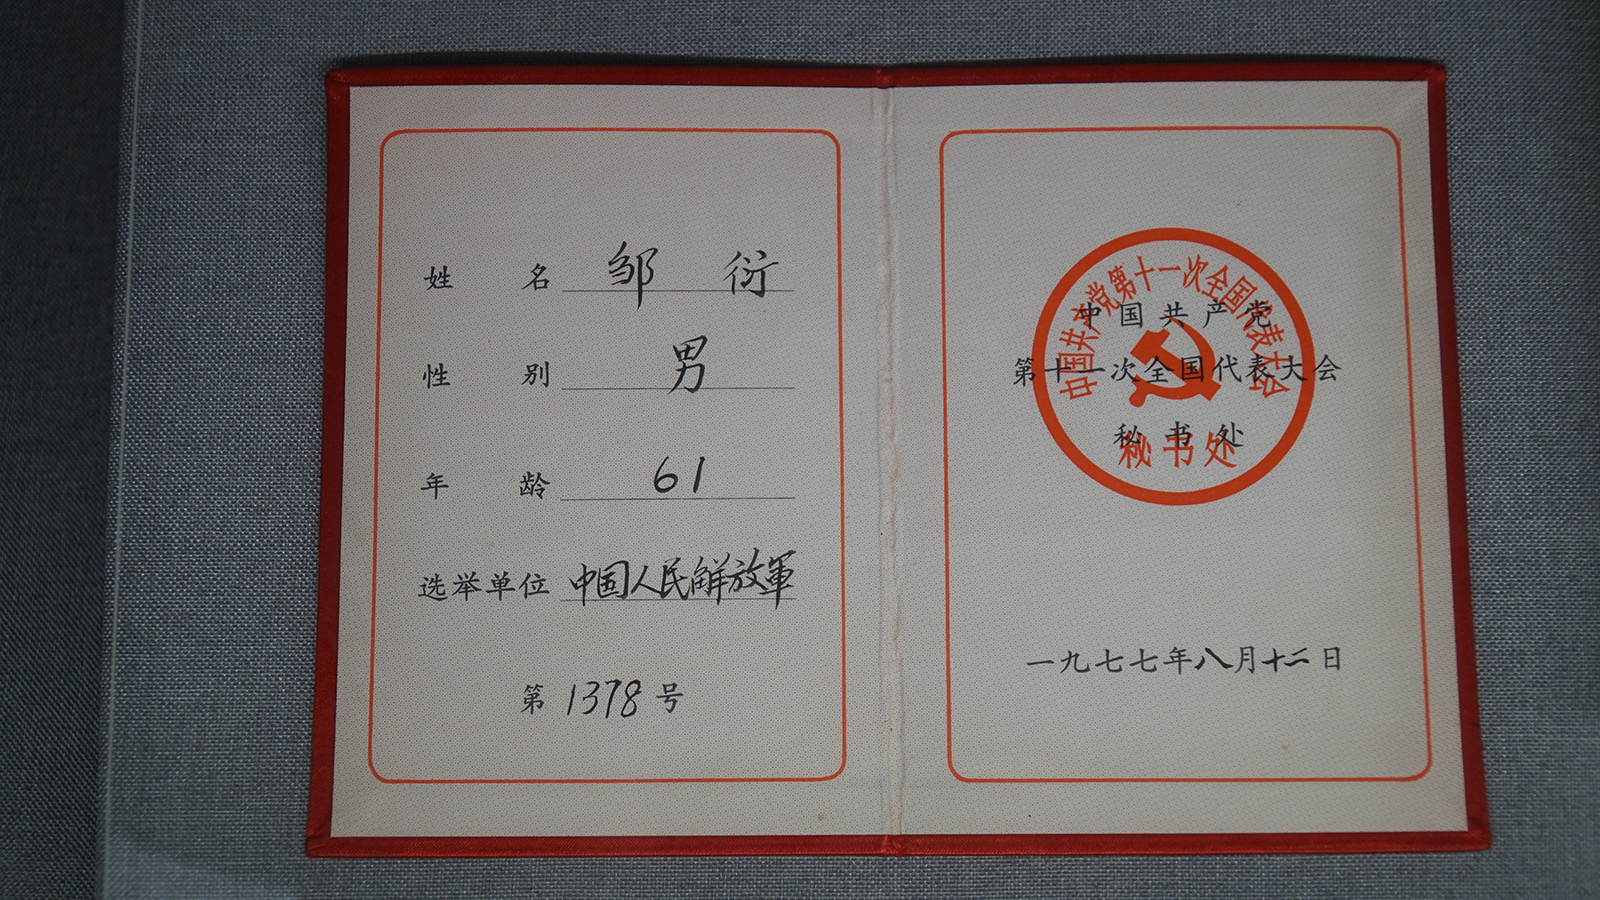 姓名 邹衍
性别 男
年龄 61
选举单位 中国人民解放軍
第1378号
中国共产党第十一次全国代表大会
秘书处
中国共产党
第十一次全国代表大会
秘书处
一九七七年八月十二日